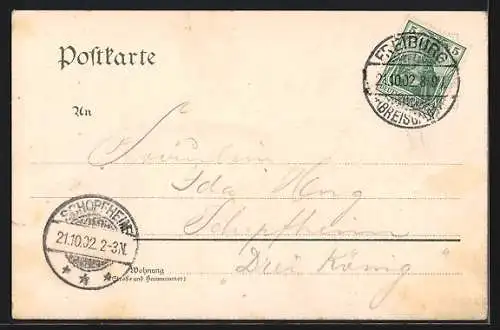 5 5
FREIBURG
Postkarte
21.10.02. 8-
(BREISGAU)
An
Fräulein
Ida
SCHOPFHEIM
Schopfheim
21.10.02. 2-3N.
Wohnung
(Straße und Hausnummer)
„Drei König"